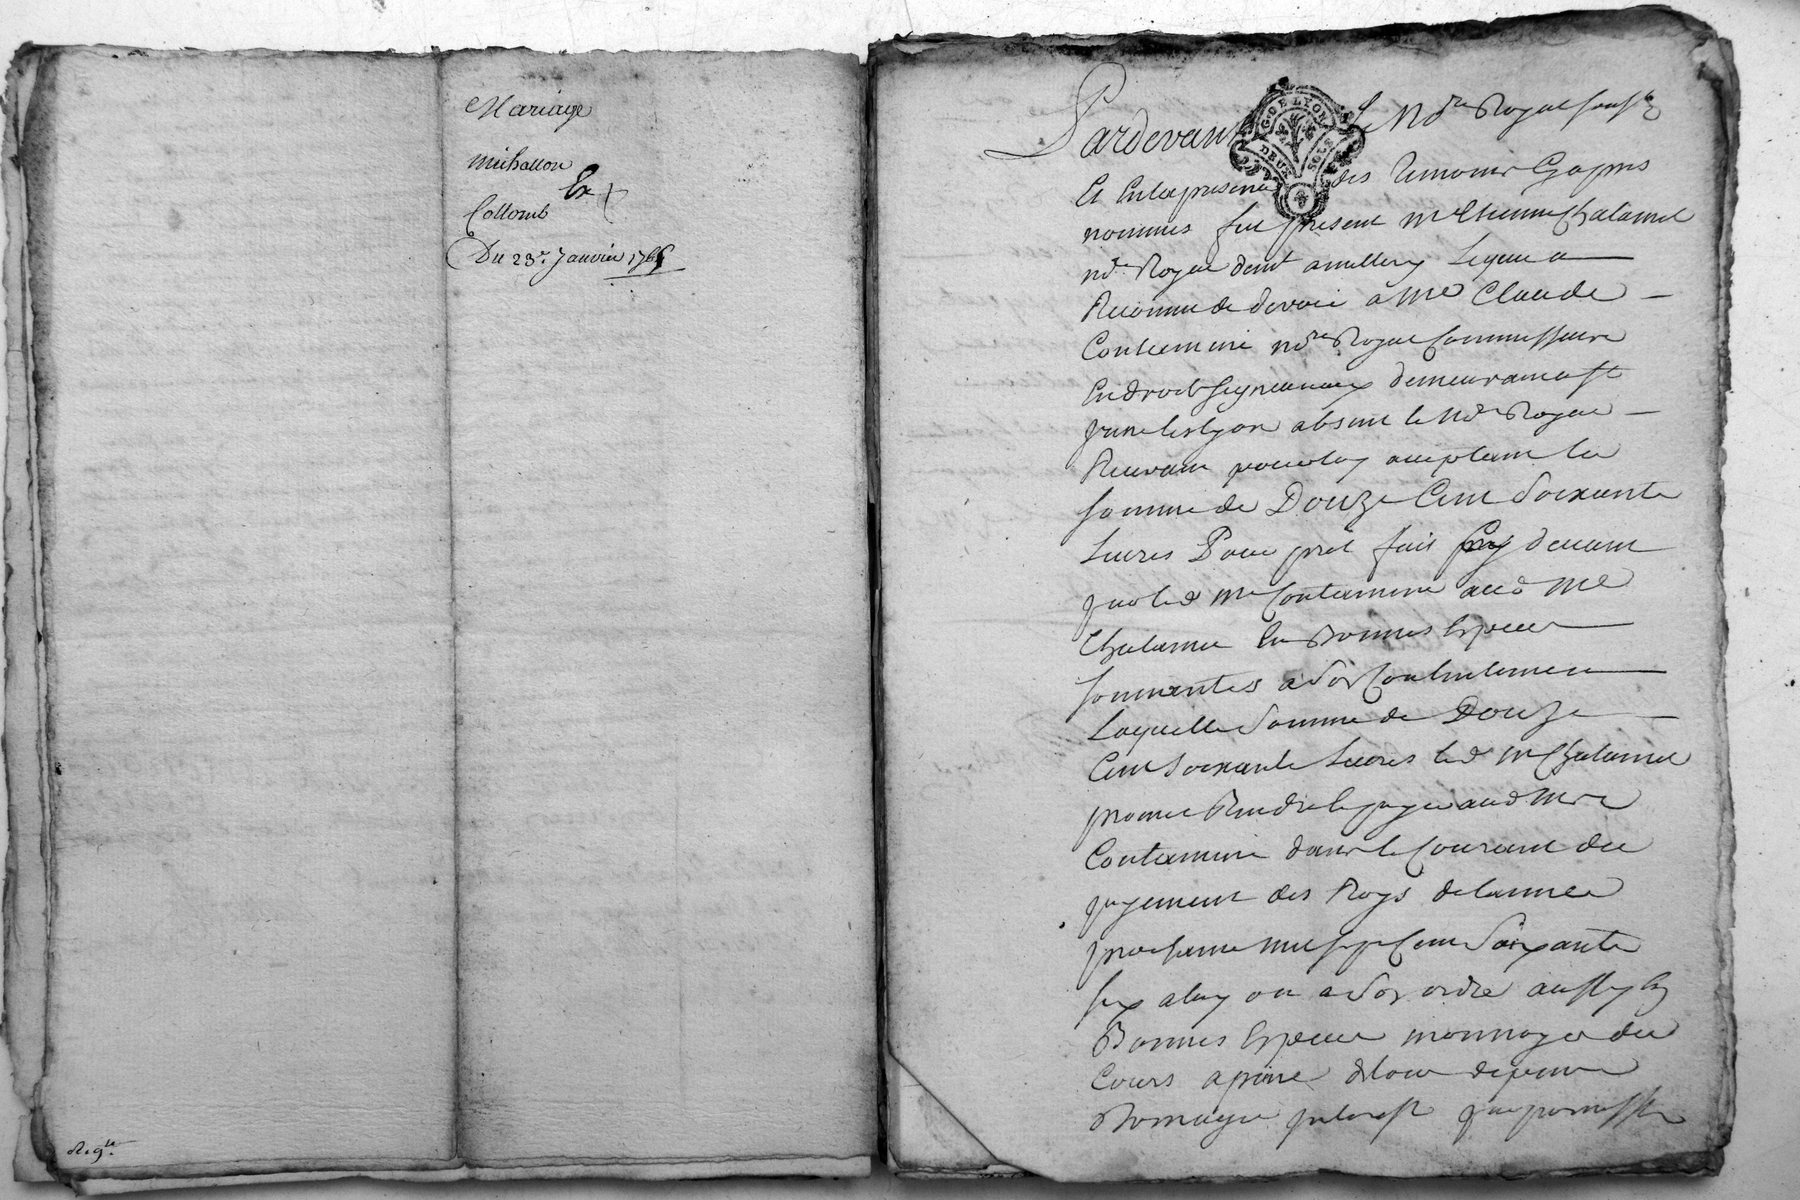 Mariage
michallon
Et
Collomb
Du 23e. Janvier 1765
Reg.
G. DE LYON
DEUX SOLS
Pardevant Le Nore Royal soussé
Et En la presence des temoins Cy apres
nommes fut present Me Etienne Chalamel
nore Royal demt Lequel a
Reconnu de devoir a Me Claude
Contamine nore Royal Commissaire
En droits seigneuriaux demeurant a st
lyon absent le Nore Royal
Recevant pour luy acceptant la
somme de Douze Cent Soixante
Livres Pour pret fait Cy devant
par led Me Contamine aud Me
Chalamel En Bonnes Especes
sonnantes a son Contentement
Laquelle Somme de Douze
Cent Soixante Livres led Me Chalamel
promet Rendre Et payer aud Me
Contamine dans le Courant du
payement des Roys de lannée
prochaine mil sept Cent Soixante
six a luy ou a son ordre aussy En
Bonnes Especes monnoye du
Cours a peine de tous depens
Domages Interest